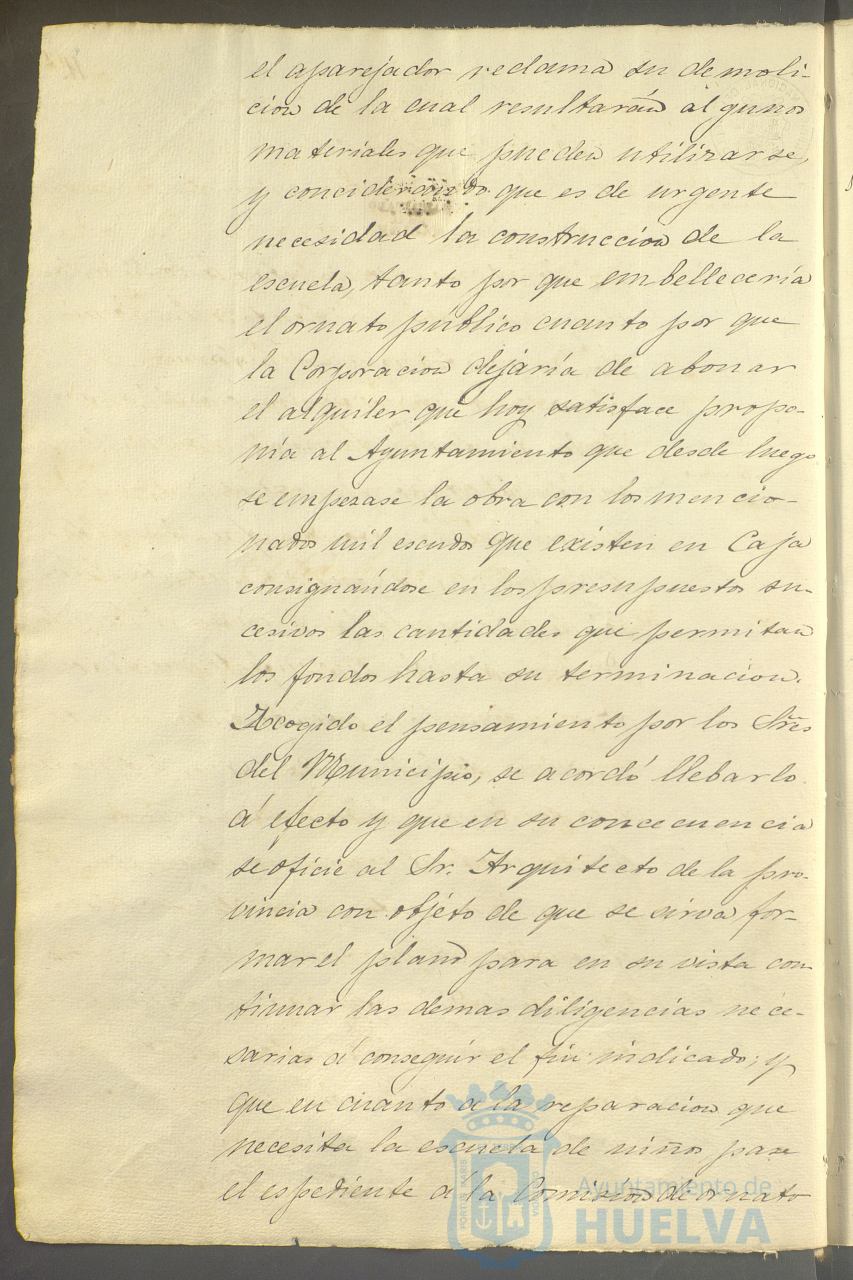 el aparejador reclama su demoli-
cion de la cual resultarán algunos
materiales que pueden utilizarse,
y conciderando que es de urgente
necesidad la construccion de la
escuela, tanto por que embelleceria
el ornato publico cuanto por que
la Corporacion dejaría de abonar
el alquiler que hoy satisface propo-
nia al Ayuntamiento que desde luego
se empezase la obra con los mencio-
nados mil escudos que existen en Caja
consignándose en los presupuestos su-
cesivos las cantidades que permitan
los fondos hasta su terminacion.
Acogido el pensamiento por los Sres
del Municipio, se acordó llebarlo
á efecto y que en su concecuencia
se oficie al Sr. Arquitecto de la pro-
vincia con objéto de que se sirva for-
mar el plano para en su vista con-
tinuar las demas diligencias nece-
sarias á conseguir el fin indicado; y
que en cuanto a la reparacion que
necesita la escuela de niños pase
el espediente a la Comision de ornato
Ayuntamiento de
HUELVA